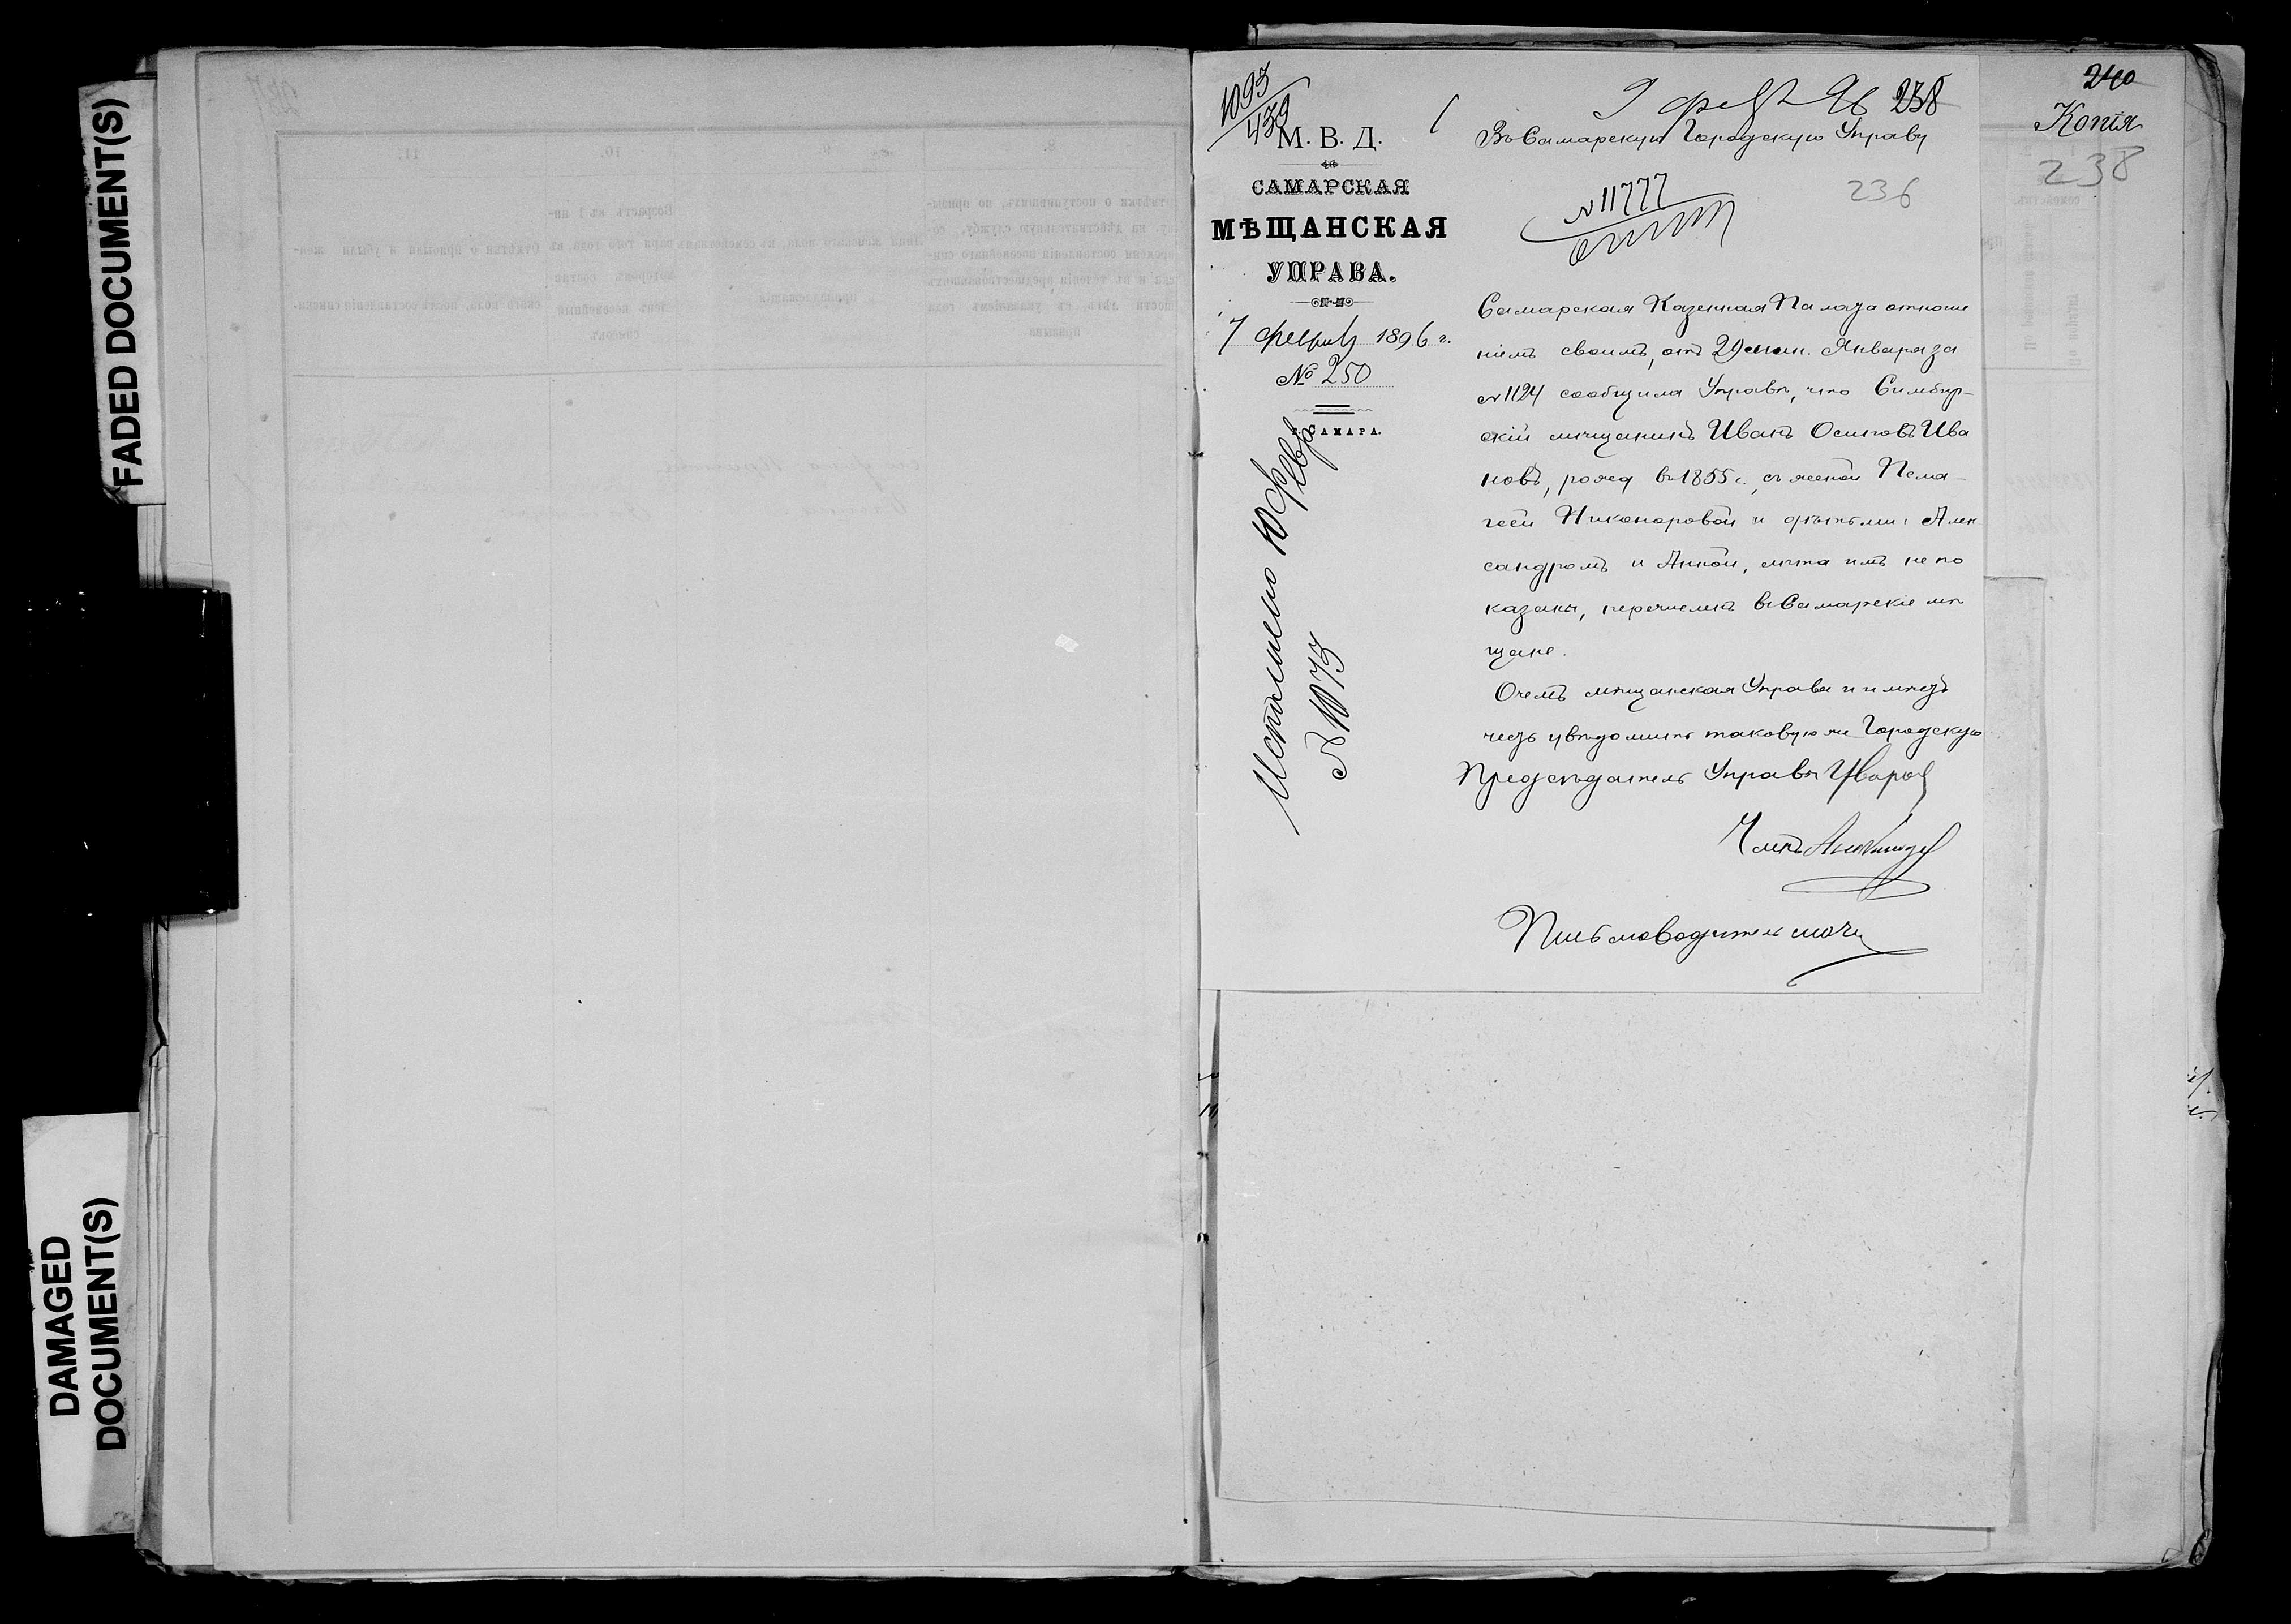 FADED DOCUMENT(S)
DAMAGED
DOCUMENT(S)
240
Копія
238
1093
439
9 февр 96 238
М. В. Д.
САМАРСКАЯ
МѢЩАНСКАЯ
УПРАВА.
7 февраля 1896 г.
№ 250
г. САМАРА.
Исполнено 10 февр
№ 1073
Въ Самарскую Городскую Управу
236
№ 11777
Самарская Казенная Палата отноше
ніемъ своимъ, отъ 29 мин. Января за
№ 1124 сообщила Управѣ, что Симбир-
скій мѣщанинъ Иванъ Осиповъ Ива
новъ, рожд въ 1855 г., съ женой Пела-
геей Никаноровой и дѣтьми: Алек
сандромъ и Анной, лѣта имъ не по
казаны, перечисленъ въ Самарскіе мѣ
щане.
О чемъ мѣщанская Управа и имѣетъ
честь увѣдомить таковую же Городскую
Предсѣдатель Управы Уваров
Членъ
Письмоводитель